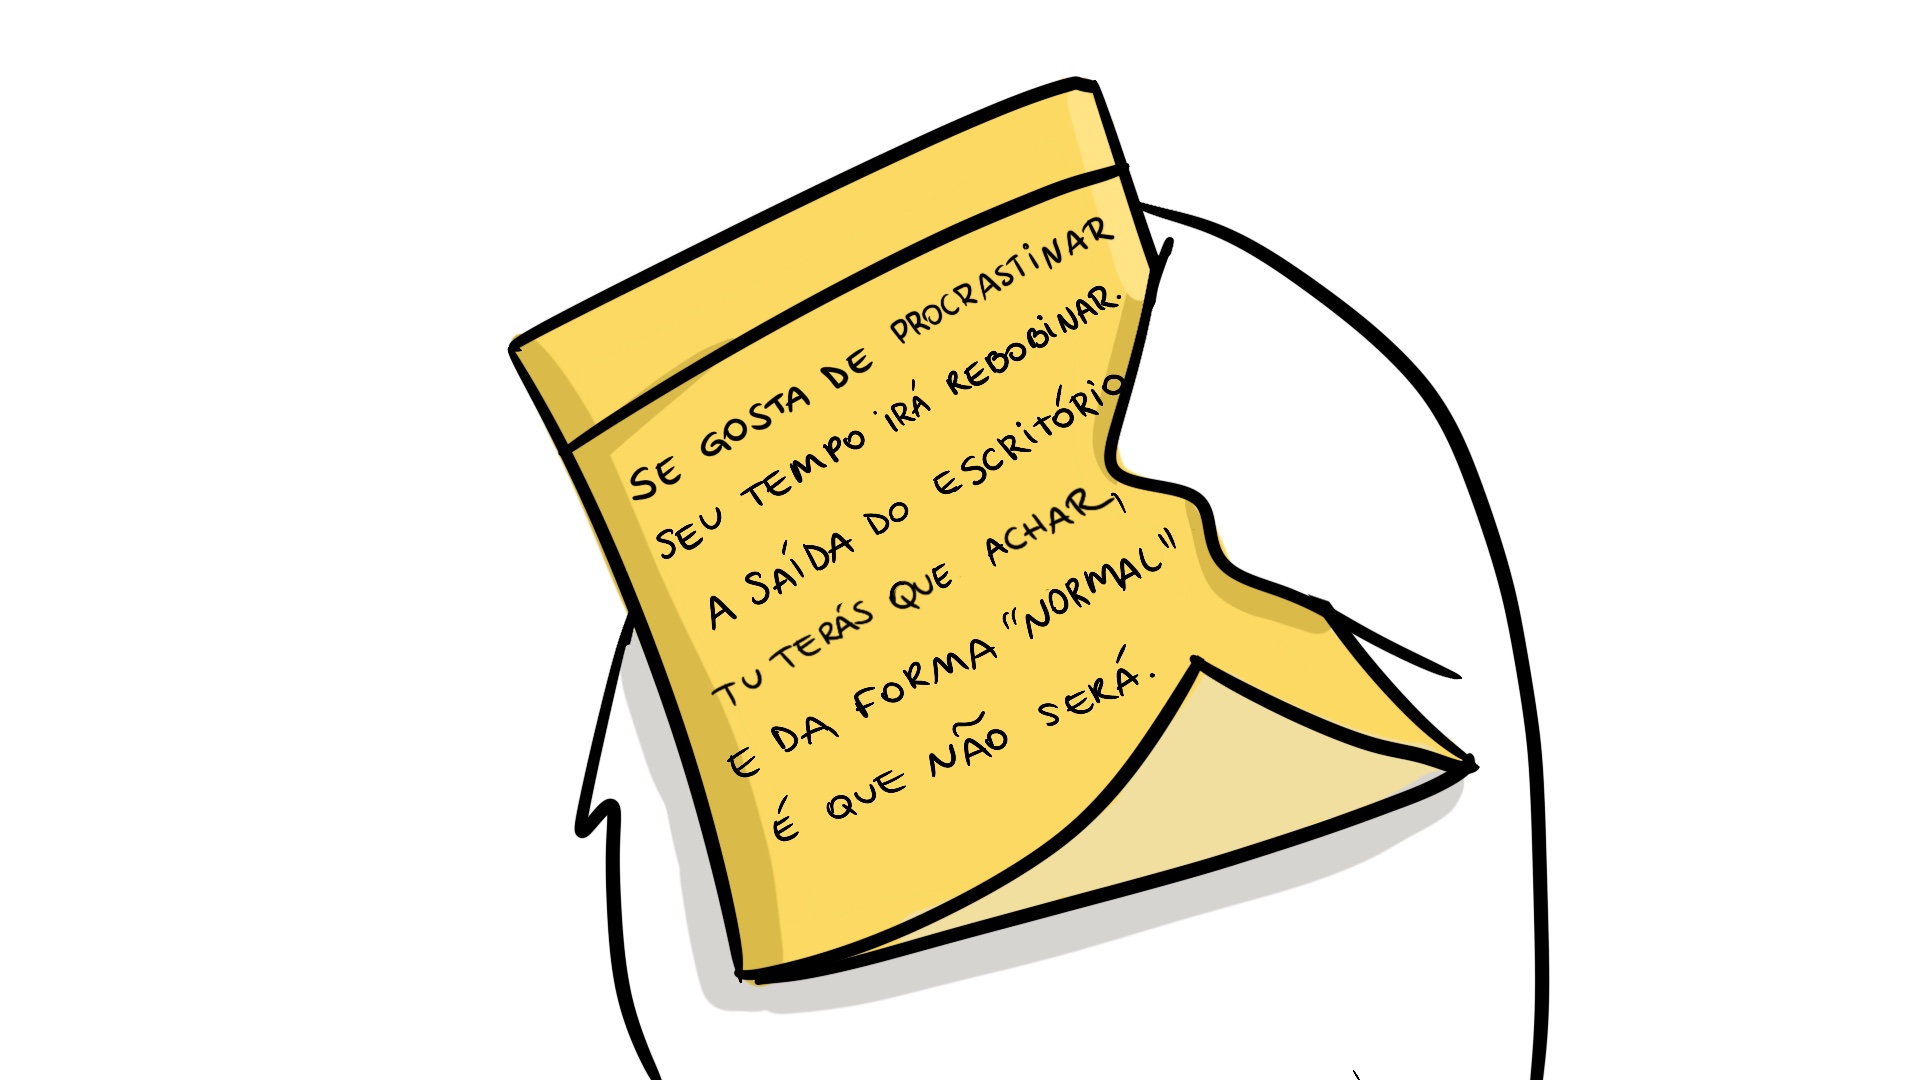 SE GOSTA DE PROCRASTINAR
SEU TEMPO IRÁ REBOBINAR.
A SAÍDA DO ESCRITÓRIO
TU TERÁS QUE ACHAR,
E DA FORMA "NORMAL"
É QUE NÃO SERÁ.